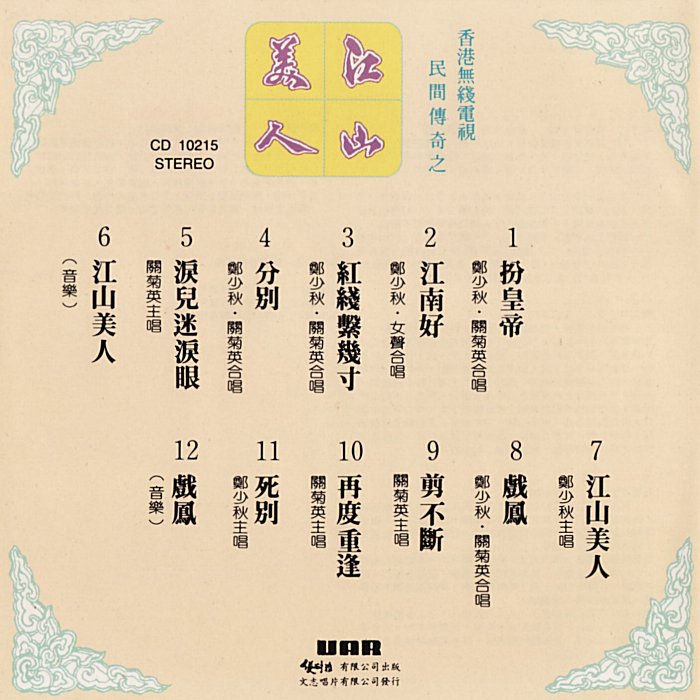 香港無綫電視
民間傳奇之
江山
美人
CD 10215
STEREO
1
扮皇帝
鄭少秋·關菊英合唱
2
江南好
鄭少秋·女聲合唱
3
紅綫繫幾寸
鄭少秋·關菊英合唱
4
分別
鄭少秋·關菊英合唱
5
淚兒迷淚眼
關菊英主唱
6
江山美人
（音樂）
7
江山美人
鄭少秋主唱
8
戲鳳
鄭少秋·關菊英合唱
9
剪不斷
關菊英主唱
10
再度重逢
關菊英主唱
11
死別
鄭少秋主唱
12
戲鳳
（音樂）
UAR
有限公司出版
文志唱片有限公司發行